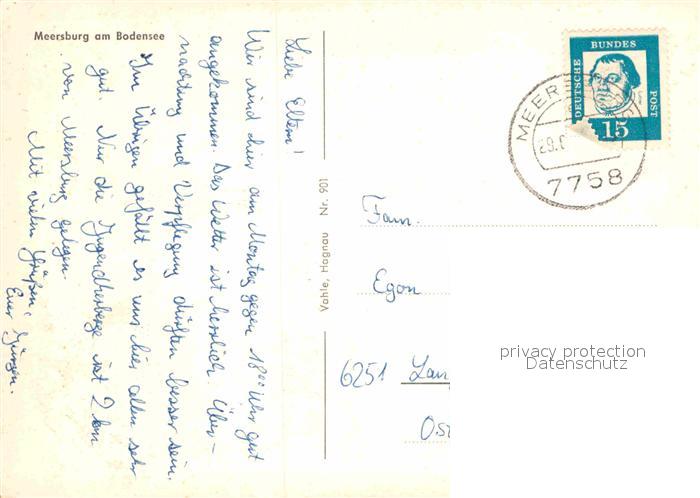 Meersburg am Bodensee
Liebe Eltern!
Wir sind hier am Montag gegen 18⁰⁰ Uhr gut
angekommen. Das Wetter ist herrlich. Über-
nachtung und Verpflegung dürften besser sein.
Im Übrigen gefällt es uns hier allen sehr
gut. Nur die Jugendherberge ist 2 km
von Meersburg gelegen.
Mit vielen Grüßen!
Euer Jürgen.
Vahle, Hagnau Nr. 901
DEUTSCHE
BUNDES
POST
15
MEER
29.
7758
Fam.
Egon
6251 Lan
Ost
privacy protection
Datenschutz